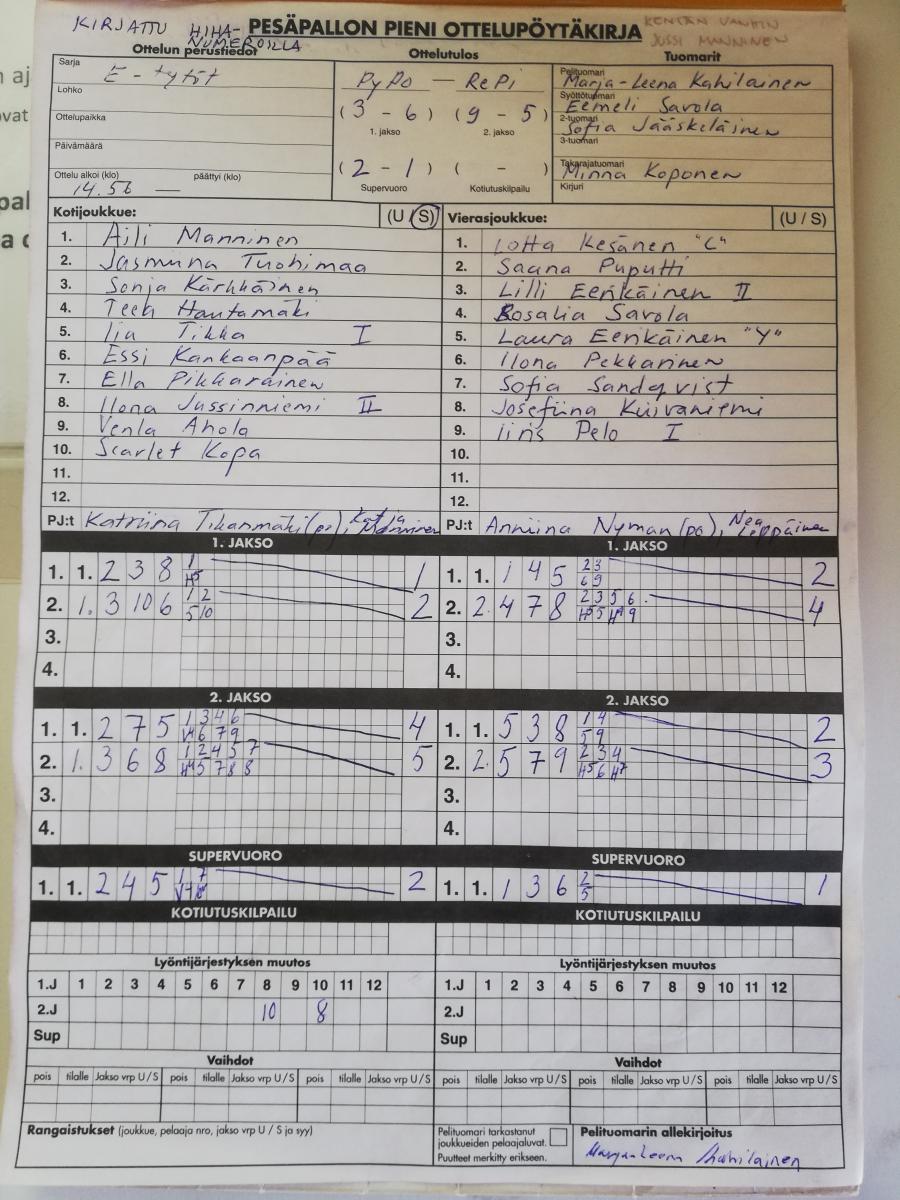 KIRJATTU HIHA-
NUMEROILLA
KENTÄN VANHIN
JUSSI MANNINEN
PESÄPALLON PIENI OTTELUPÖYTÄKIRJA
Ottelun perustiedot
Sarja E-tytöt
Lohko
Ottelupaikka
Päivämäärä
Ottelu alkoi (klo) päättyi (klo)
14.56 —
Ottelutulos
PyPo — RePi
(3 - 6) (9 - 5)
1. jakso 2. jakso
(2 - 1) ( - )
Supervuoro Kotiutuskilpailu
Tuomarit
Pelituomari
Marja-Leena Kahilainen
Syöttötuomari
Eemeli Savola
2-tuomari
Sofia Jääskeläinen
3-tuomari
Takarajatuomari
Minna Koponen
Kirjuri
Kotijoukkue: (U / S)
1. Aili Manninen
2. Jasmiina Tuohimaa
3. Sonja Kärkkäinen
4. Teeh Hautamäki
5. Iia Tikka I
6. Essi Kankaanpää
7. Ella Pikkarainen
8. Ilona Jussinniemi II
9. Venla Ahola
10. Scarlet Kopa
11.
12.
PJ:t Katriina Tikanmäki (po), Katja Manninen
Vierasjoukkue: (U / S)
1. Lotta Kesänen "C"
2. Saana Puputti
3. Lilli Eerikäinen II
4. Rosalia Savola
5. Laura Eerikäinen "Y"
6. Ilona Pekkarinen
7. Sofia Sandqvist
8. Josefiina Kiivaniemi
9. Iiris Pelo I
10.
11.
12.
PJ:t Anniina Nyman (po), Nea Leppäinen
1. JAKSO
1. 1. 2 3 8 1 H5 1
2. 1. 3 10 6 1 2 5 10 2
3.
4.
1. JAKSO
1. 1. 1 4 5 2 3 6 9 2
2. 2. 4 7 8 2 3 5 6 H5 5 H9 9 4
3.
4.
2. JAKSO
1. 1. 2 7 5 1 3 4 6 H6 7 9 4
2. 1. 3 6 8 1 2 4 5 7 H4 5 7 8 8 5
3.
4.
2. JAKSO
1. 1. 5 3 8 1 4 5 9 2
2. 2. 5 7 9 2 3 4 H5 6 H7 3
3.
4.
SUPERVUORO
1. 1. 2 4 5 1 7 2
SUPERVUORO
1. 1. 1 3 6 2 5 1
KOTIUTUSKILPAILU
KOTIUTUSKILPAILU
Lyöntijärjestyksen muutos
1.J 1 2 3 4 5 6 7 8 9 10 11 12
2.J 10 8
Sup
Lyöntijärjestyksen muutos
1.J 1 2 3 4 5 6 7 8 9 10 11 12
2.J
Sup
Vaihdot
pois tilalle Jakso vrp U / S pois tilalle Jakso vrp U / S pois tilalle Jakso vrp U / S
Vaihdot
pois tilalle Jakso vrp U / S pois tilalle Jakso vrp U / S pois tilalle Jakso vrp U / S
Rangaistukset (joukkue, pelaaja nro, jakso vrp U / S ja syy)
Pelituomari tarkastanut
joukkueiden pelaajaluvat.
Puutteet merkitty erikseen.
Pelituomarin allekirjoitus
Marja-Leena Kahilainen